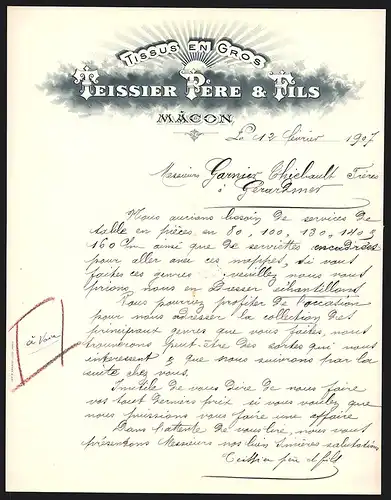 TISSUS EN GROS
TEISSIER PÈRE & FILS
MÂCON
Le 12 février 1907
Messieurs Garnier Thiébault Frères
à Gérardmer
Nous aurions besoin de services de
table en pièces en 80, 100, 130, 140 &
160 c/m ainsi que de serviettes encadrées
pour aller avec ces nappes, si vous
faites ces genres veuillez nous vous
prions nous en dresser échantillons
Vous pourriez profiter de l'occasion
pour nous adresser la collection des
principaux genres que vous faites, nous
trouverons peut-être des sortes qui nous
intéressent & que nous suivrons par la
suite chez vous.
à voir
Inutile de vous dire de nous faire
vos tout derniers prix si vous voulez que
nous puissions vous faire une affaire
Dans l'attente de vous lire, nous vous
présentons Messieurs nos bien sincères salutations
Teissier père & fils